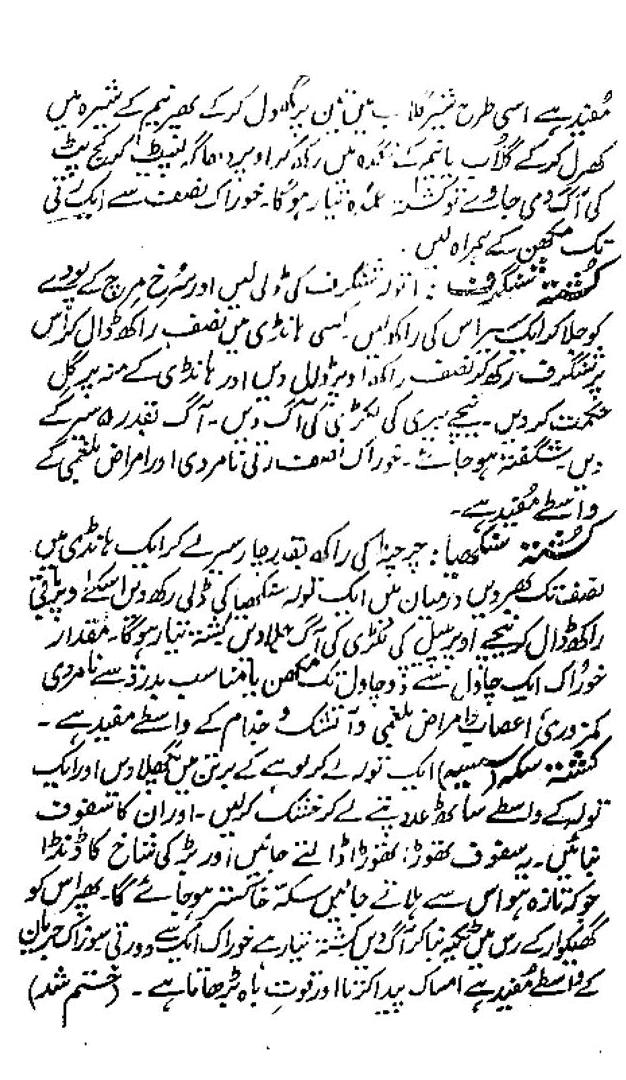 مُفید ہے اسی طرح شیر گلاب میں تین پہر کھرل کرکے پھر نیم کے شیرہ میں
کھرل کرکے گلاب یا نیم کے نغدہ میں رکھ کر اوپر دھاگہ لپیٹ کر گج پٹ
کی آگ دی جاوے تو کشتہ عمدہ تیار ہوگا۔ خوراک نصف سے ایک رتی
تک مکھن کے ہمراہ لیں۔
کُشتہ شنگرف: ا تولہ شنگرف کی ڈلی لیں اور سُرخ مرچ کے پودے
کو جلا کر ایک سیر اس کی راکھ لیں۔ کسی ہانڈی میں نصف راکھ ڈال کر اس
پر شنگرف رکھ کر نصف راکھ اوپر ڈال دیں اور ہانڈی کے منہ پر گلِ
حکمت کردیں۔ نیچے بیری کی لکڑی کی آگ دیں۔ آگ بقدر ۵ سیر کے
دیں۔ شگفتہ ہو جائے۔ خوراک نصف رتی نامردی اور امراض بلغمی کے
واسطے مُفید ہے۔
کُشتہ سنکھیا: چرچٹہ کی راکھ بقدر چار سیر لے کر ایک ہانڈی میں
نصف تک بھر دیں درمیان میں ایک تولہ سنکھیا کی ڈلی رکھ دیں اسکے اوپر باقی
راکھ ڈال کر نیچے اوپر پیپل کی لکڑی کی آگ جلادیں کشتہ تیار ہوگا۔ مقدار
خوراک ایک چاول سے دو چاول تک مکھن یا مناسب بدرقہ سے نامردی
کمزوریٔ اعصاب امراض بلغمی و آتشک و جذام کے واسطے مفید ہے۔
کُشتہ سکہ (سیسہ) ایک تولہ لے کر لوہے کے برتن میں پگھلا دیں اور ایک
تولہ کے واسطے ساٹھ عدد پتے لے کر خشک کرلیں۔ اور ان کا سفوف
بنائیں۔ یہ سفوف تھوڑا تھوڑا ڈالتے جائیں اور بڑ کی شاخ کا ڈنڈا
جو کہ تازہ ہو اس سے ہلاتے جائیں سکہ خاکستر ہو جائے گا۔ پھر اس کو
گھیکوار کے رس میں ٹکیہ بنا کر آگ دیں کشتہ تیار ہے خوراک ایک سے دو رتی سوزاک جریان
کے واسطے مُفید ہے امساک پیدا کرتا اور قوتِ باہ بڑھاتا ہے۔ (ختم شد)